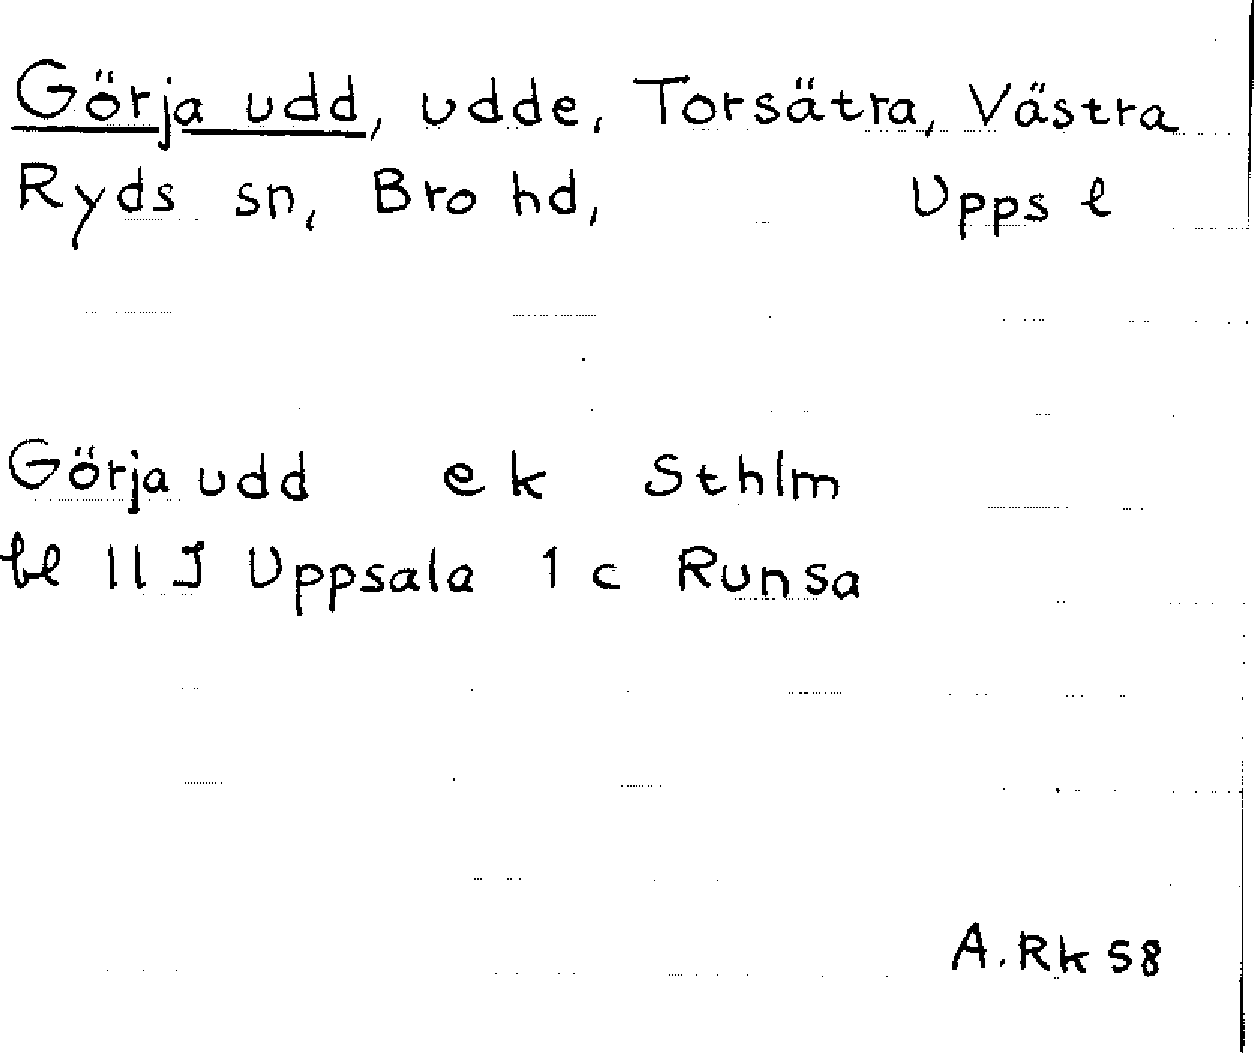 Görja udd, udde, Torsätra, Västra
Ryds sn, Bro hd, Upps l
Görja udd ek Sthlm
bl 11 I Uppsala 1 c Runsa
A. Rk 58